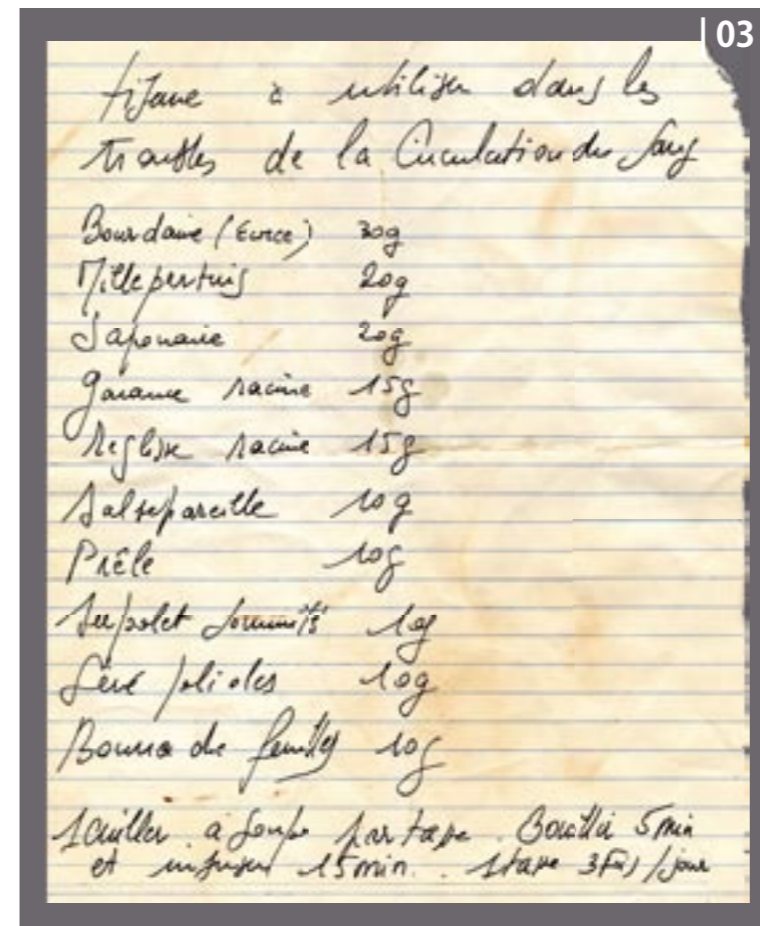 | 03
tisane à utiliser dans les
troubles de la Circulation du Sang
Bourdaine (Ecorce) 30g
Millepertuis 20g
Saponaire 20g
garance racine 15g
Reglisse racine 15g
Salsepareille 10g
Prêle 10g
Serpolet sommités 10g
Séné folioles 10g
Bourrache feuilles 10g
1 cuiller à soupe par tasse. Bouillir 5 min
et infuser 15 min. 1 tasse 3 Fois / jour